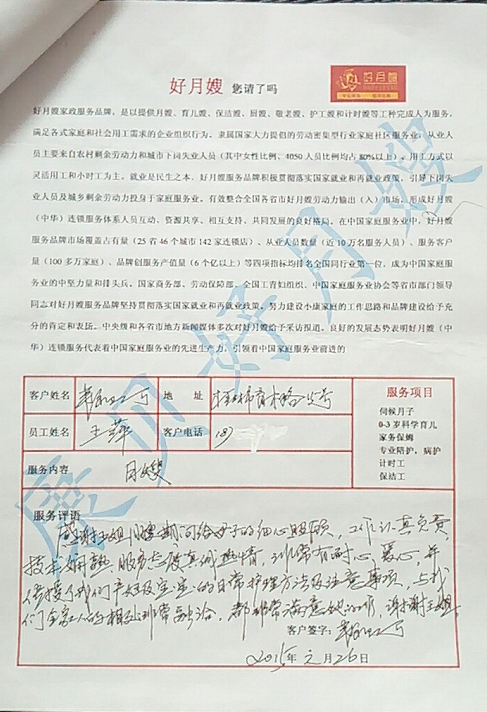 好月嫂 您请了吗
好月嫂
好月嫂家政服务品牌，是以提供月嫂、育儿嫂、保洁嫂、厨嫂、敬老嫂、护工嫂和计时嫂等工种完成人为服务，
满足各式家庭和社会用工需求的企业组织行为，隶属国家大力提倡的劳动密集型行业家庭社区服务业，从业人
员主要来自农村剩余劳动力和城市下岗失业人员（其中女性比例、4050人员比例均占80%以上），用工方式以
灵活用工和小时工为主。就业是民生之本，好月嫂服务品牌积极贯彻落实国家就业和再就业政策，引导下岗失
业人员及城乡剩余劳动力投身于家庭服务业，有效整合全国各省市好月嫂劳动力输出（入）市场，形成好月嫂
（中华）连锁服务体系人员互动、资源共享、相互支持、共同发展的良好格局。在中国家庭服务业中，好月嫂
服务品牌市场覆盖占有量（25省46个城市142家连锁店）、从业人员数量（近10万名服务人员）、服务客户
量（100多万家庭）、品牌创服务产值量（6个亿以上）等四项指标均排名全国同行业第一位，成为中国家庭服
务业的中坚力量和排头兵，国家商务部、劳动保障部、全国工青妇组织、中国家庭服务业协会等省市部门领导
同志对好月嫂服务品牌坚持贯彻落实国家就业和再就业政策，努力建设小康家庭的工作思路和品牌建设给予充
分的肯定和表扬。中央级和各省市地方新闻媒体多次对好月嫂给予采访报道。良好的发展态势表明好月嫂（中
华）连锁服务代表着中国家庭服务业的先进生产力，引领着中国家庭服务业前进的
客户姓名 地 址
员工姓名 王萍 客户电话 189
服务内容 月嫂
服务项目
伺候月子
0-3岁科学育儿
家务保姆
专业陪护，病护
计时工
保洁工
服务评语
感谢王姐月嫂期间给母子的细心照顾，工作认真负责
技术娴熟，服务态度真诚热情，非常有耐心、爱心，并
传授了我们产妇及宝宝的日常护理方法及注意事项，与我
们全家人的相处非常融洽，都非常满意她的工作，谢谢王姐。
客户签字：
2015年元月26日
康贝好月嫂